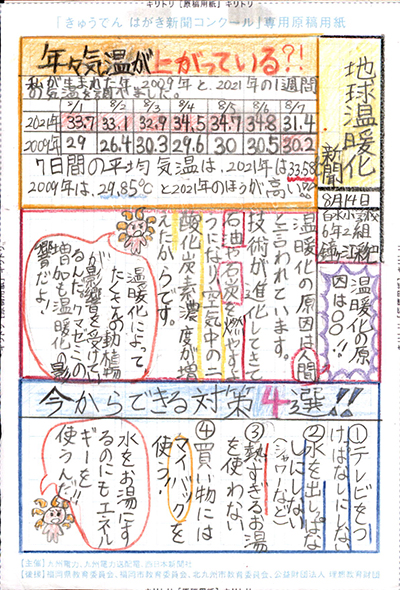 キリトリ【原稿用紙】キリトリ
「きゅうでん はがき新聞コンクール」専用原稿用紙
地球温暖化
新聞
8月14日
6年2組
年々気温が上がっている?!
私が生まれた年、2009年と2021年の1週間
の気温を調べました。
8/1 8/2 8/3 8/4 8/5 8/6 8/7
2021年 33.7 33.1 32.9 34.5 34.7 34.8 31.4
2009年 29 26.4 30.3 29.6 30 30.5 30.2
7日間の平均気温は、2021年は33.58
2009年は、29.85℃と2021年のほうが高い
温暖化の原
因は〇〇!!
温暖化の原因は人間
と言われています。
技術が進化してきて
石油や石炭を燃やすよ
うになり、空気中の二
酸化炭素濃度が増
えたからです。
温暖化によって
たくさんの動植物
が影響を受けて
るんだ。クマゼミの
増加も温暖化の影
響だよ!
今からできる対策4選!!
①テレビをつ
けはなしにしない
②水を出しぱな
しにしない
(シャワーなど)
③熱すぎるお湯
を使わない
④買い物には
マイバックを
使う!
水をお湯にす
るのにもエネル
ギーを
使うんだ!
【主催】九州電力、九州電力送配電、西日本新聞社
【後援】福岡県教育委員会、福岡市教育委員会、北九州市教育委員会、公益財団法人 理数教育研究所
キリトリ【原稿用紙】キリトリ